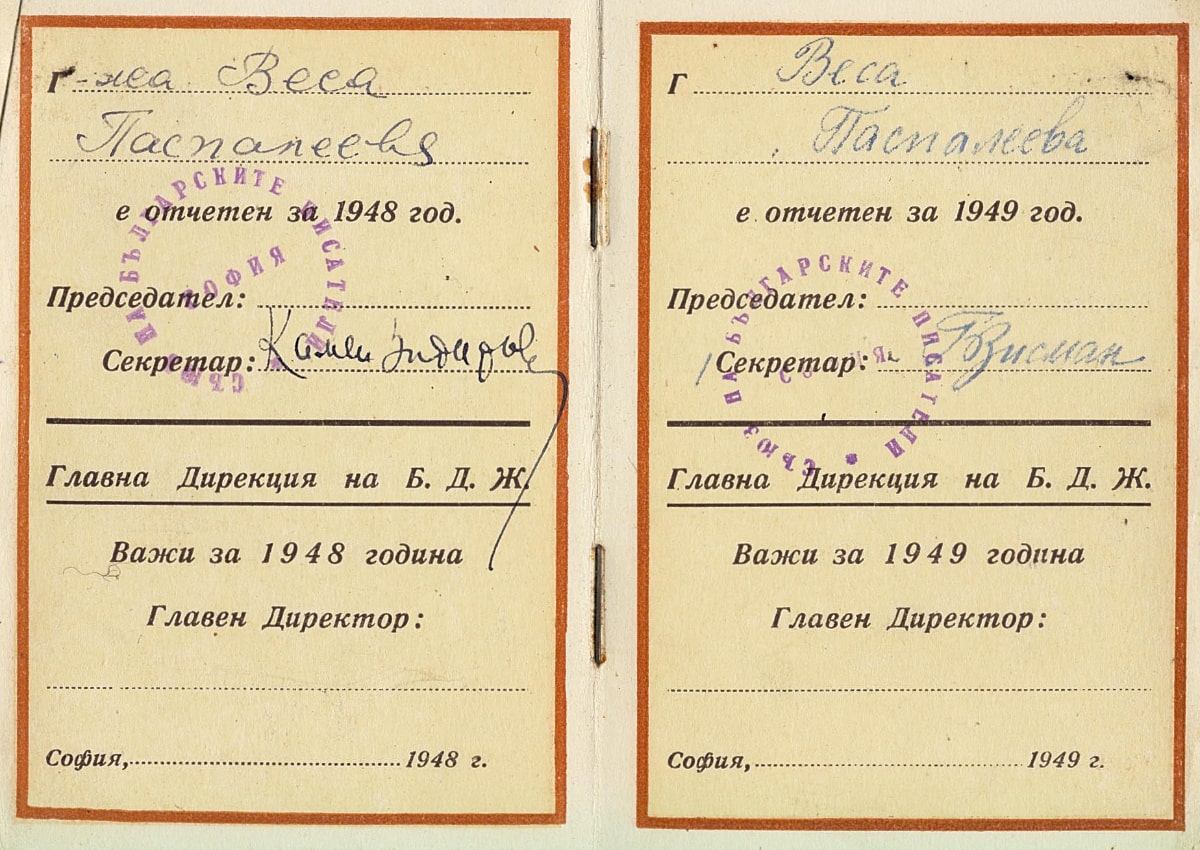 Г-жа Веса
Паспалеева
е отчетен за 1948 год.
Председател:
Секретар: Камен Зидаров
Главна Дирекция на Б. Д. Ж.
Важи за 1948 година
Главен Директор:
София, 1948 г.
СЪЮЗ НА БЪЛГАРСКИТЕ ПИСАТЕЛИ *
СОФИЯ
Г Веса
Паспалеева
е отчетен за 1949 год.
Председател:
Секретар:
Главна Дирекция на Б. Д. Ж.
Важи за 1949 година
Главен Директор:
София, 1949 г.
СЪЮЗ НА БЪЛГАРСКИТЕ ПИСАТЕЛИ *
СОФИЯ